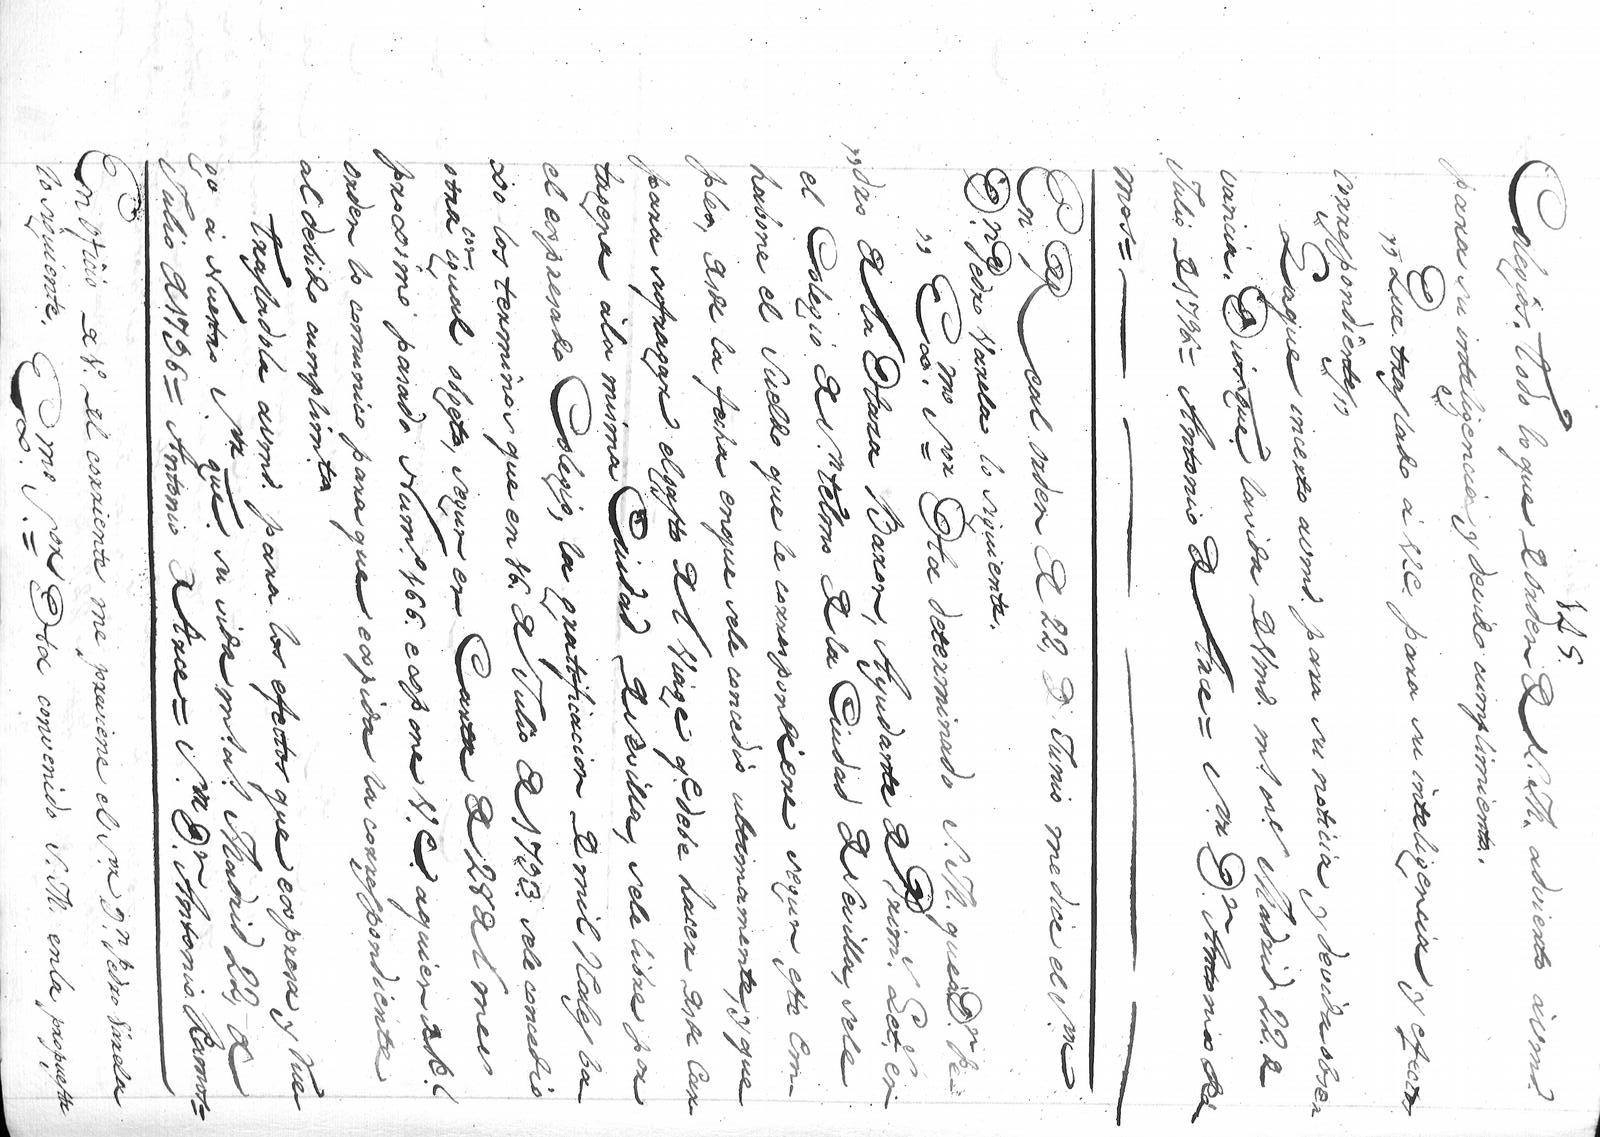 125.
Colegio. Todo lo que de orden de S.M. advierto aVmd
para su inteligencia y devido cumplimiento.
"Que traslado à V.E. para su inteligencia y efectos
correspondientes"
Loque inserto aVmd. para su noticia y devida obser
vancia. Dios gue. la vida de Vmd. ms. as. Madrid 22 de
Julio de 1796= Antonio de Arce= Sor. Dn. Antonio Ra
mos=
En Real orden de 22, de Junio me dice el Sr.
Dn. Pedro Varela lo siguiente.
"Exmo. Sor.= Ha determinado S.M. que à Dn. Pe
"dro de la Plaza Baron, Ayudante de Prim. Let. en
el Colegio de Sn. Telmo de la Ciudad de Sevilla, sele
habone el Sueldo que le correspondiere segun este Em-
pleo, desde la fecha enque sele concedió ultimamente, y que
para sufragar elgasto del Viage q.e debe hacer desde Car
tagena àla misma Ciudad de Sevilla, sele libre por
el expresado Colegio, la gratificacion de mil reales ba
xo los terminos que en 16. de Julio de 1793. sele concedió
otra con igual objeto, segun en Carta de 28 del mes
procsimo pasado Num.o 166. expone V.E. aquien de Rl.
orden lo comunico para que expida la correspondiente
al debido cumplimto.
Trasladola aVmd. para los efectos que expresa y Rue
go à Nuestro Sr. gue. su vida ms. as. Madrid 22, de
Julio de 1796= Antonio de Arce= Sr. Dn. Antonio Ramos=
En oficio de 8. del corriente me previene el Sr. Dn. Pedro Varela
lo siguiente. Exmo. Sor.= Ha convenido S.M. enla propuesta